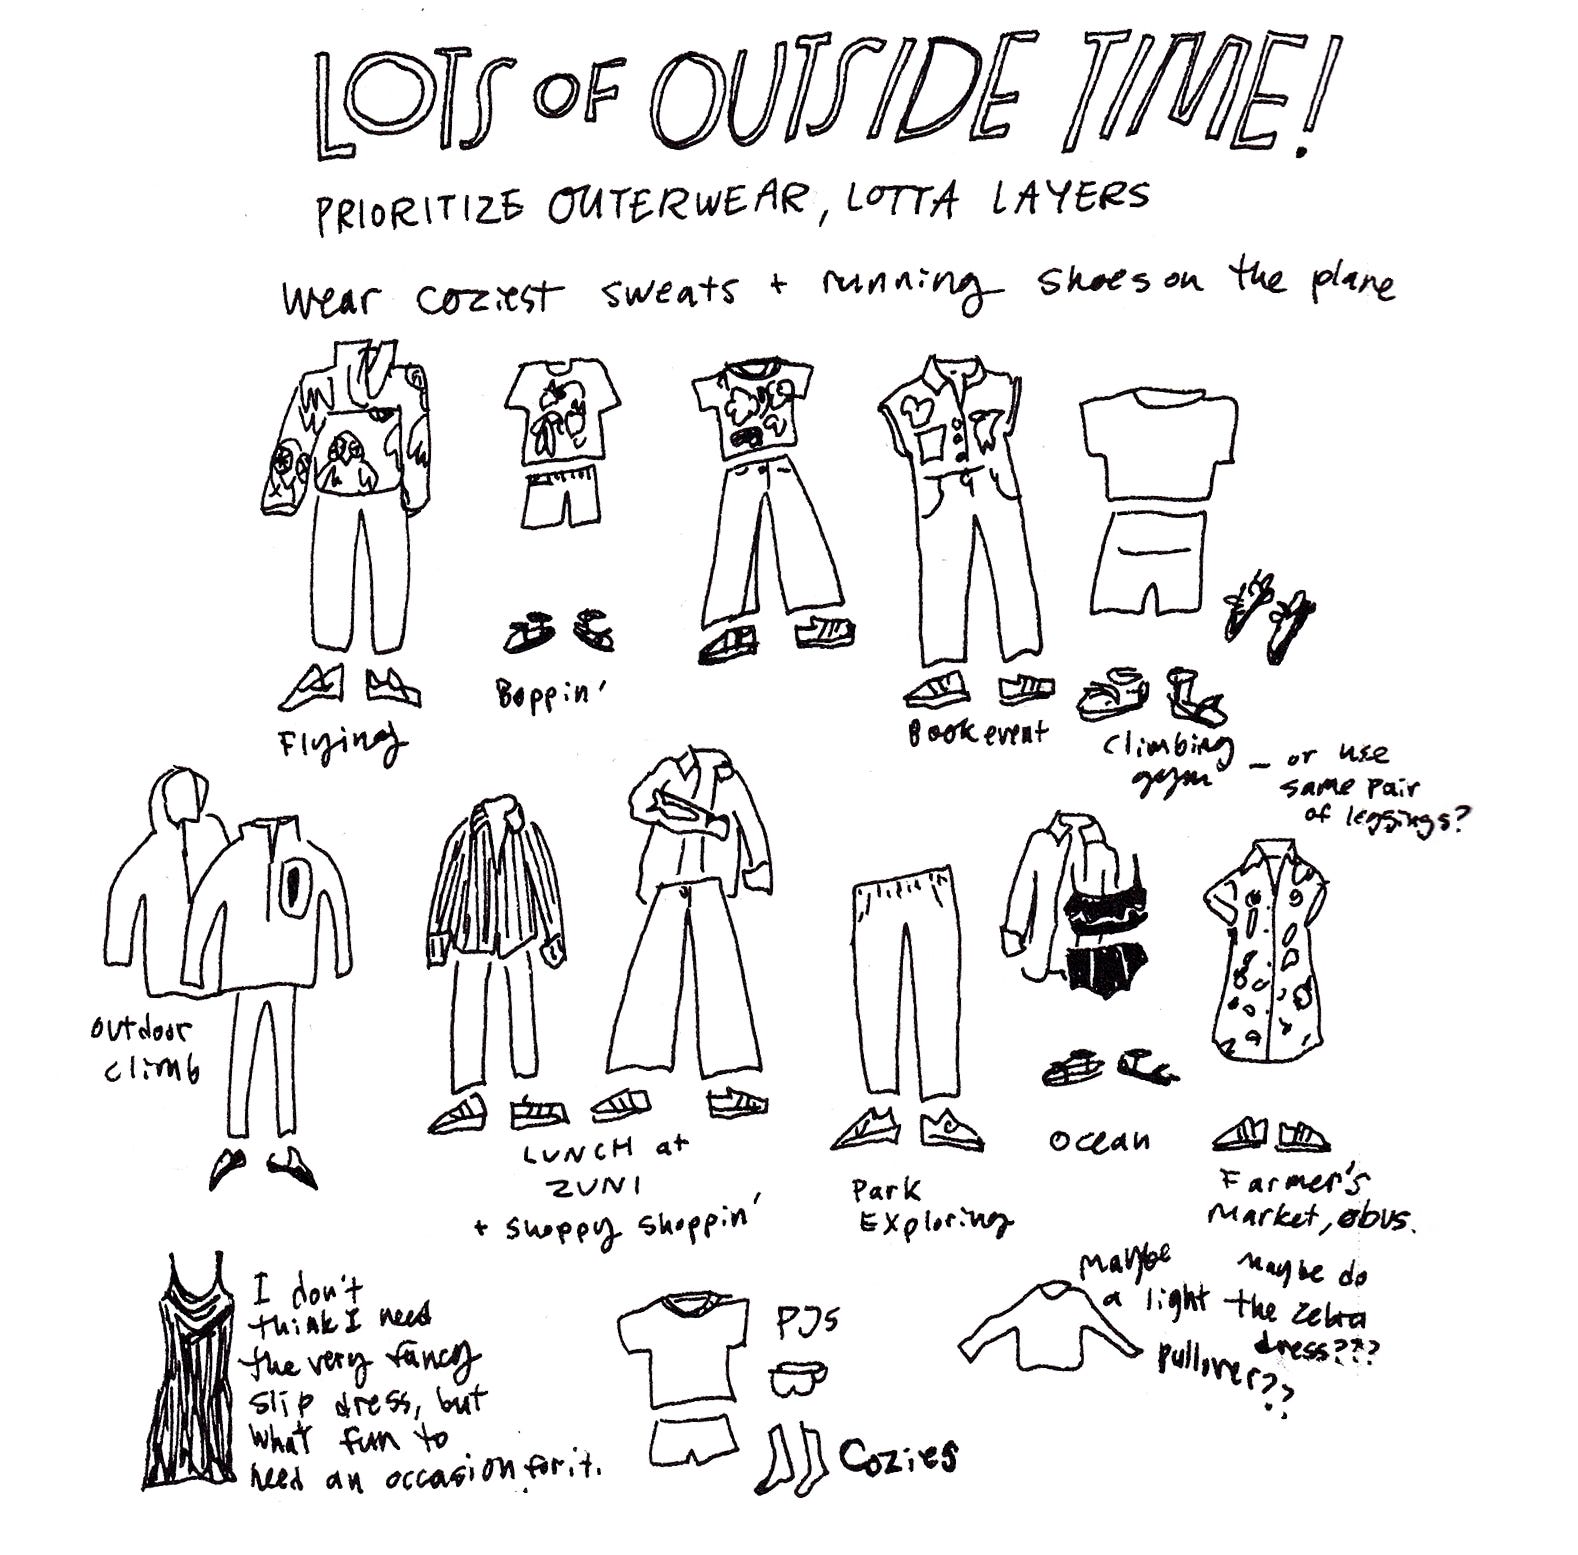 LOTS OF OUTSIDE TIME!
PRIORITIZE OUTERWEAR, LOTTA LAYERS
Wear coziest sweats + running shoes on the plane
Flying
Boppin'
Book event
Climbing
gym
— or use
same pair
of leggings?
outdoor
climb
LUNCH at
ZUNI
+ shoppy shoppin'
Park
Exploring
Ocean
Farmer's
Market, obvs.
I don't
think I need
the very fancy
slip dress, but
what fun to
need an occasion for it.
PJS
Cozies
Maybe
a light
pullover??
Maybe do
the zebra
dress???